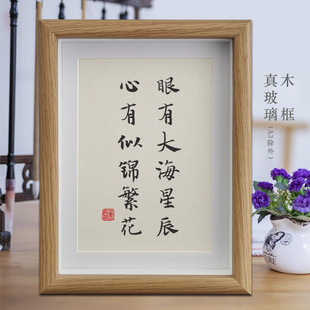 眼有大海星辰
心有似锦繁花
木框
真玻璃
(A3除外)